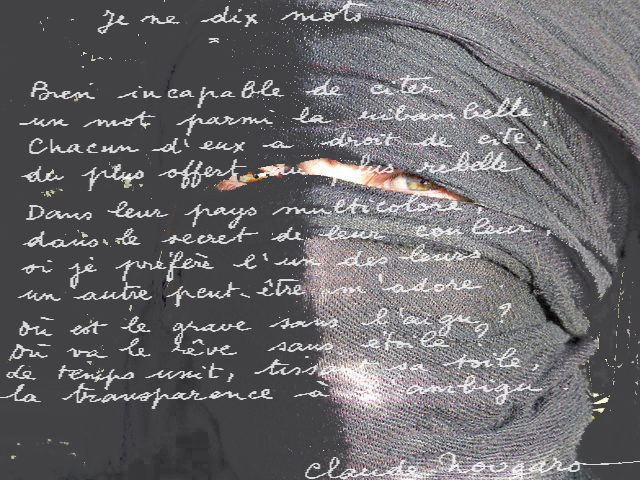 Je ne dix mots
Bien incapable de citer
un mot parmi la ribambelle,
Chacun d'eux a droit de cité,
du plus offert au plus rebelle
Dans leur pays multicolore
dans le secret de leur couleur,
si je préfère l'un des leurs
un autre peut-être m'adore
où est le grave sans l'aigu ?
Où va le rêve sans étoile ?
Le temps unit, tissant sa toile,
la transparence à l'ambigu
Claude Nougaro